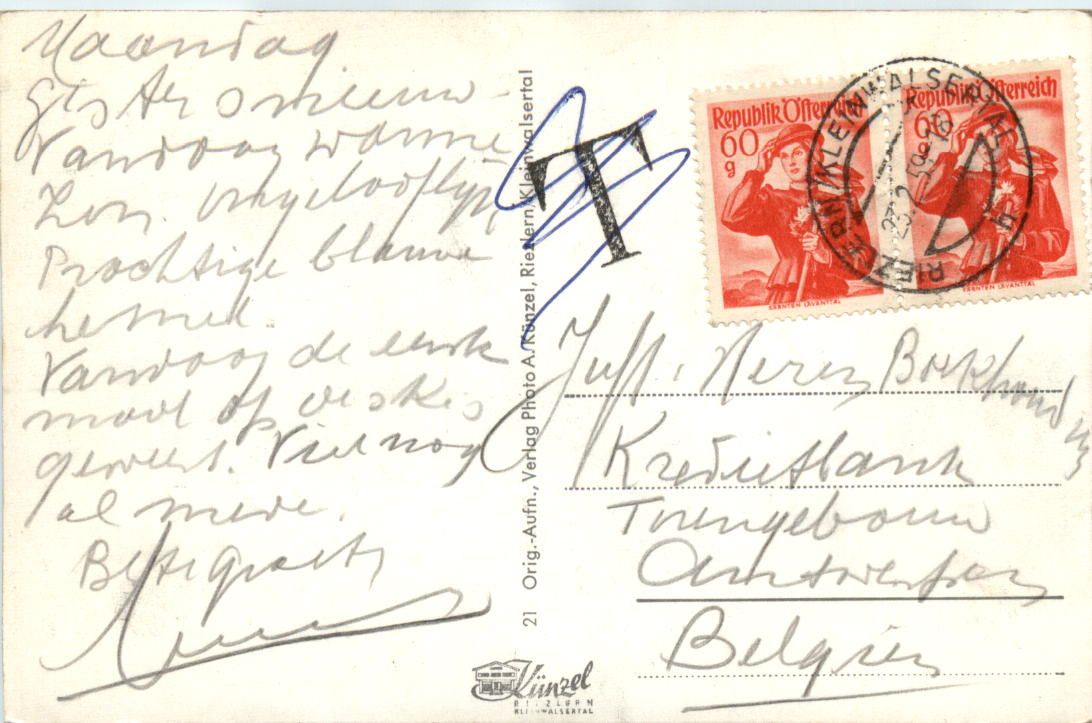 Maandag
Gisteren sneeuw -
Vandaag warme
Zon. ongelooflijk
Prachtige blauwe
hemel.
Vandaag de eerste
maal op de skis
geweest. Viel nog
al mede.
Beste groeten
21 Orig.-Aufn., Verlag Photo A. Künzel, Riezlern/Kleinwalsertal
T
Republik Österreich
60
g
KÄRNTEN LAVANTTAL
Republik Österreich
60
g
KÄRNTEN LAVANTTAL
RIEZLERN/KLEINWALSERTAL
23.2.59-16
Juff. Heren
Kredietbank
Torengebouw
Antwerpen
België
Künzel
RIEZLERN
KLEINWALSERTAL